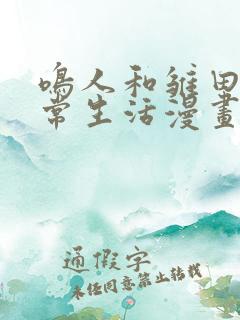 鳴人和雛田
常生活漫畫
通假字
未經同意禁止轉載